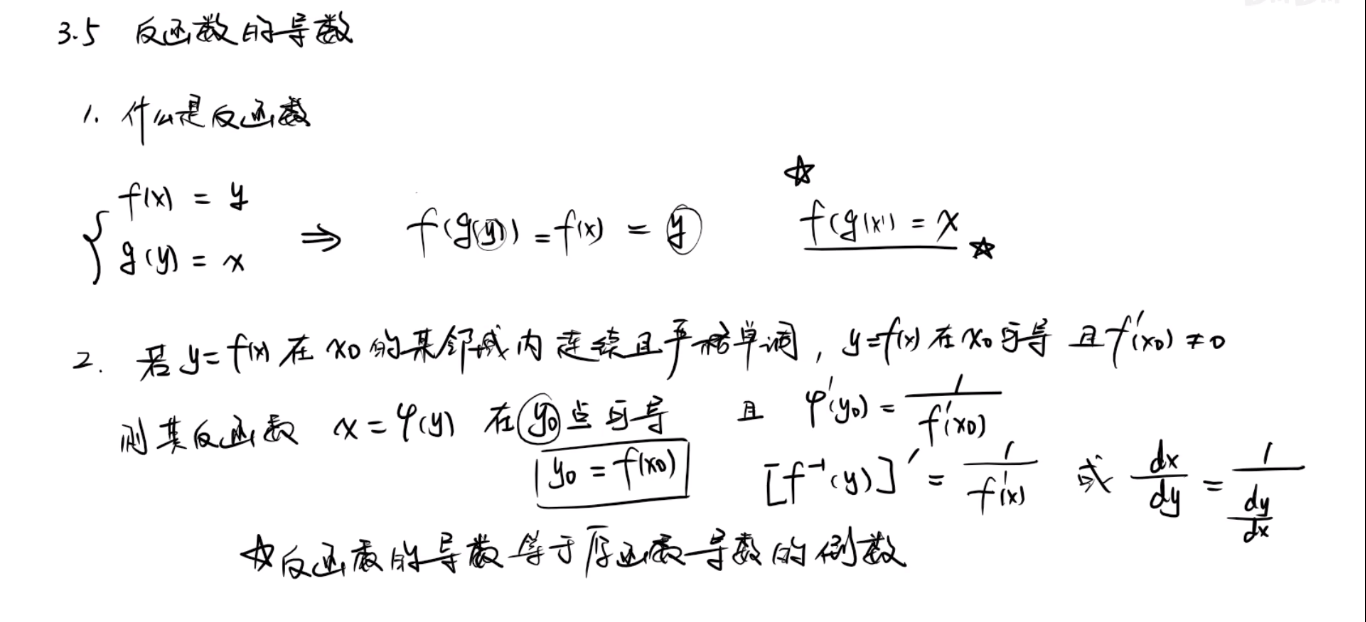 3.5 反函数的导数
1. 什么是反函数
{ f(x) = y
g(y) = x
⇒ f(g(y)) = f(x) = y
☆ f(g(x)) = x ☆
2. 若 y=f(x) 在 x0 的某邻域内 连续且严格单调, y=f(x) 在 x0 可导 且 f'(x0) ≠ 0
则其反函数 x = φ(y) 在 y0 点可导 且 φ'(y0) = 1/f'(x0)
y0 = f(x0)
[f⁻¹(y)]' = 1/f'(x) 或 dx/dy = 1/(dy/dx)
☆反函数的导数等于原函数导数的倒数